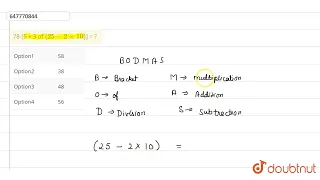 647770844
78-[5+3 of (25 - 2 × 10)] = ?
Option1 58
Option2 38
Option3 48
Option4 56
BODMAS
B → Bracket
M → multiplication
O → of
A → Addition
D → Division
S → Subtraction
(25 - 2 × 10) =
doubtnut